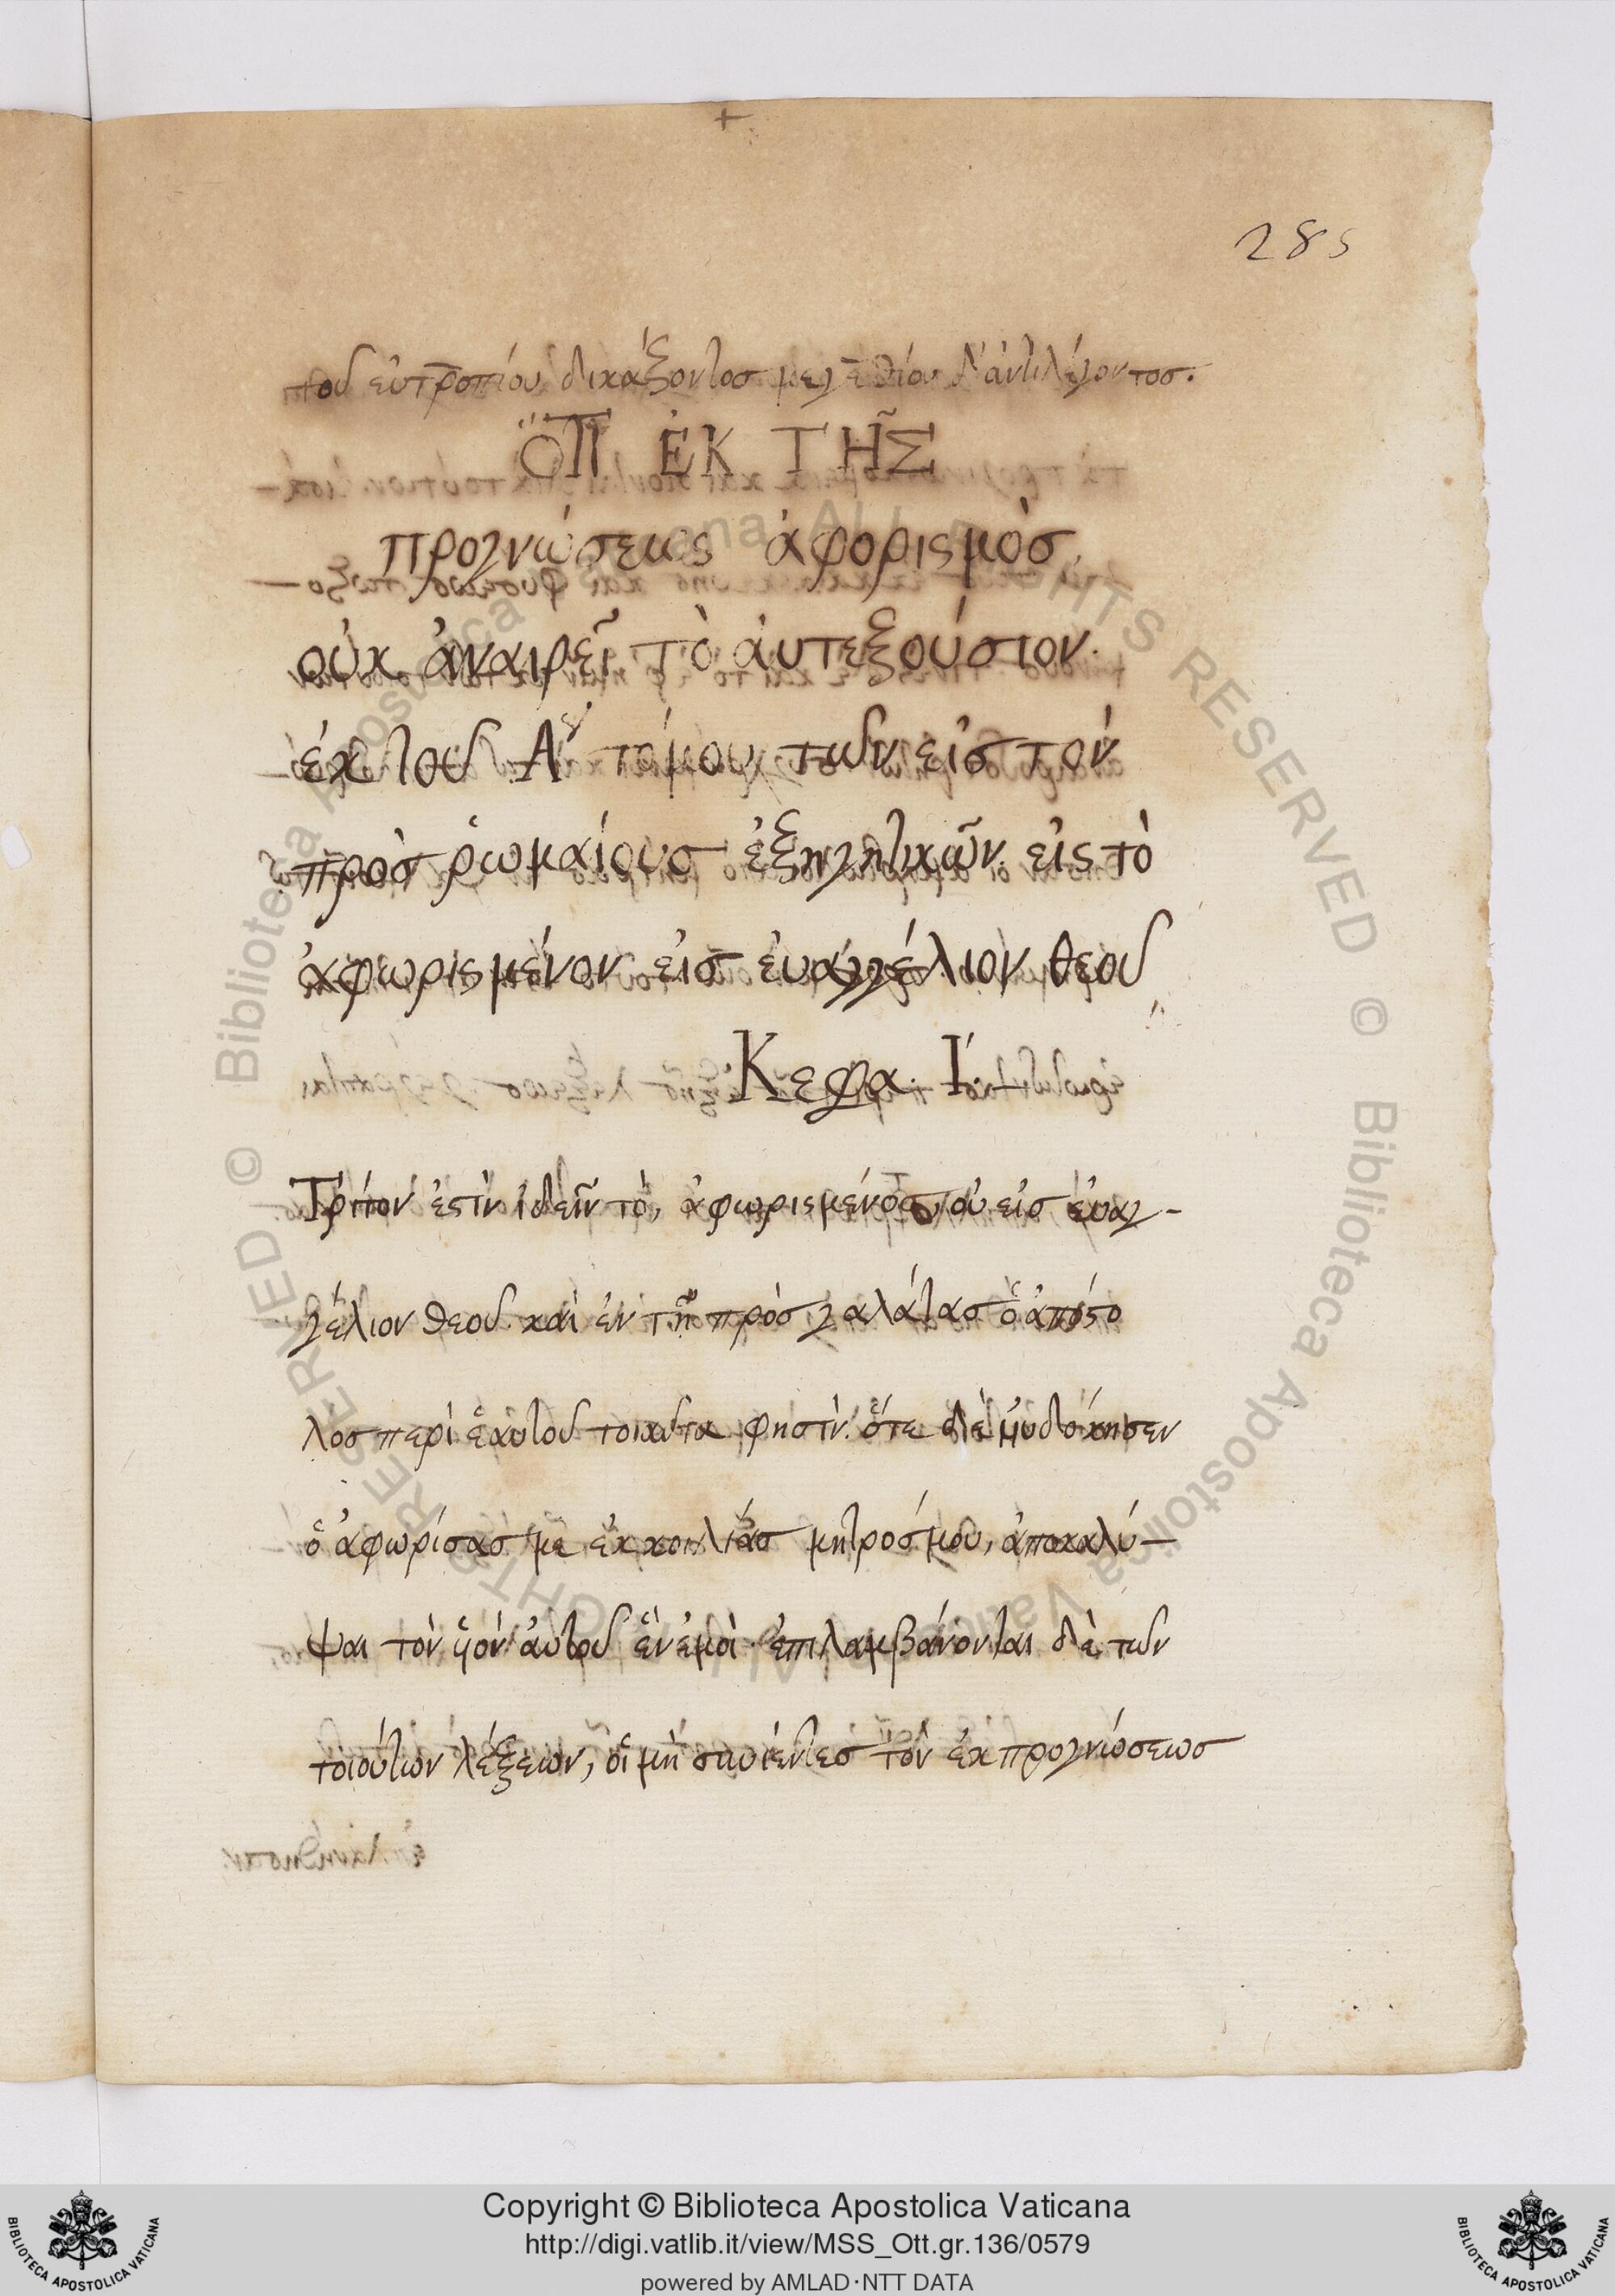 285
τοῦ εὐτροπίου δικάζοντος μεγεθίου δ' ἀντιλέγοντος.
ὍΤΙ ἘΚ ΤΗ͂Σ
προγνώσεως ἀφορισμὸς
οὐκ ἀναιρεῖ τὸ αὐτεξούσιον.
ἐκ τοῦ Α' τόμου τῶν εἰς τὸν
πρὸς ῥωμαίους ἐξηγητικῶν. εἰς τὸ
ἀφωρισμένον εἰς εὐαγγέλιον θεοῦ
Κεφα. Ι.
Τρίτον ἐστὶν ἰδεῖν τὸ, ἀφωρισμένος, εἰς εὐαγ-
γέλιον θεοῦ. καὶ ἐν τῇ πρὸς γαλάτας ὁ ἀπόστο
λος περὶ ἑαυτοῦ τοιαῦτα φησίν. ὅτε δὲ ηὐδόκησεν
ὁ ἀφωρίσας με ἐκ κοιλίας μητρός μου, ἀποκαλύ-
ψαι τὸν ὑὸν αὐτοῦ ἐν ἐμοί. ἐπιλαμβάνονται δὲ τῶν
τοιούτων λέξεων, οἱ μὴ συνιέντες τὸν ἐκ προγνώσεως
Copyright © Biblioteca Apostolica Vaticana
http://digi.vatlib.it/view/MSS_Ott.gr.136/0579
powered by AMLAD·NTT DATA
BIBLIOTECA APOSTOLICA VATICANA
BIBLIOTECA APOSTOLICA VATICANA